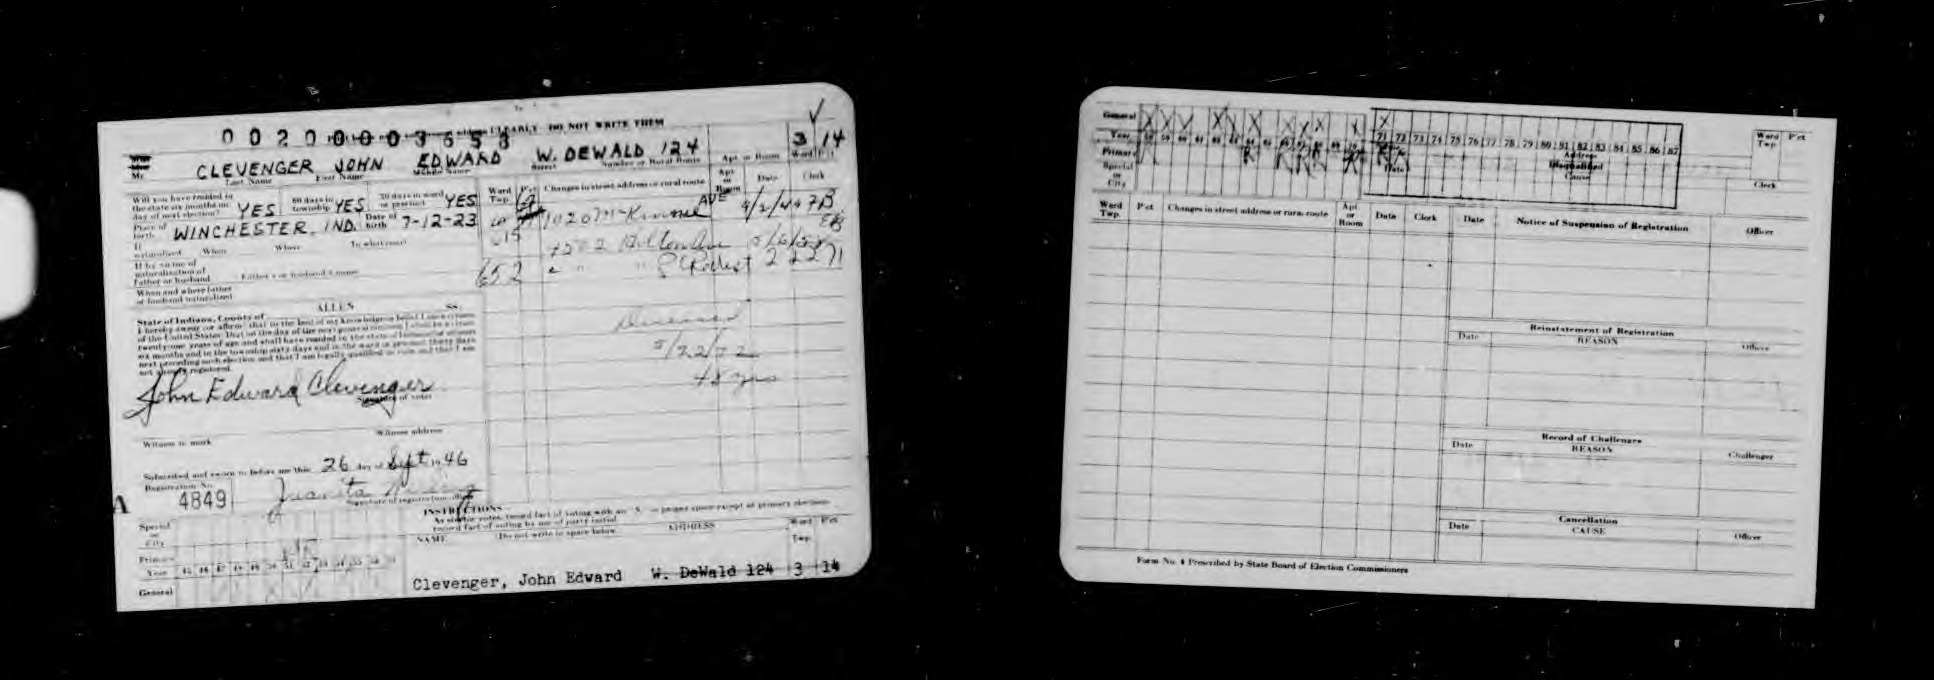 CLEARLY DO NOT WRITE THEM
00200003658
Mr. CLEVENGER JOHN EDWARD W. DEWALD 124 3 14
Last Name First Name Middle Name Street Number or Rural Route Apt or Room Ward Pct
Will you have resided in the state six months on day of next election? YES 60 days in township YES 30 days in ward or precinct YES
Ward Twp. Pct Changes in street address or rural route Apt or Room Date Clerk
Place of birth WINCHESTER, IND. Date of birth 7-12-23
1020 McKinnie AVE 9/2/49
615
If naturalized When Where In what court
If by virtue of naturalization of Father or husband Father's or husband's name
652
When and where father or husband naturalized
State of Indiana, County of ALLEN ss.
I hereby swear (or affirm) that to the best of my knowledge or belief I am a citizen
of the United States. That on the day of the next general election I shall be a citizen
twenty-one years of age and shall have resided in the state of Indiana
six months and in the township sixty days and in the ward or precinct thirty days
next preceding such election and that I am legally qualified to vote and that I am
not already registered.
Deceased
5/22/72
48 yrs
John Edward Clevenger
Signature of voter
Witness to mark Witness address
Subscribed and sworn to before me this 26 day of Sept 1946
Registration No.
A 4849 Juanita
Signature of registration officer
INSTRUCTIONS
Special or City
Primary
Year 45 46 47 48 49 50 51 52 53 54 55 56 57
General
NAME (Do not write in space below) ADDRESS Ward Twp. Pct
Clevenger, John Edward W. DeWald 124 3 14
General
Year 71 72 73 74 75 76 77 78 79 80 81 82 83 84 85 86 87
Primary
Special or City
Date Address Disqualified Cause
Ward Twp. Pct
Clerk
Ward Twp. Pct Changes in street address or rural route Apt or Room Date Clerk
Date Notice of Suspension of Registration Officer
Reinstatement of Registration
Date REASON Officer
Record of Challenges
Date REASON Challenger
Cancellation
Date CAUSE Officer
Form No. 4 Prescribed by State Board of Election Commissioners